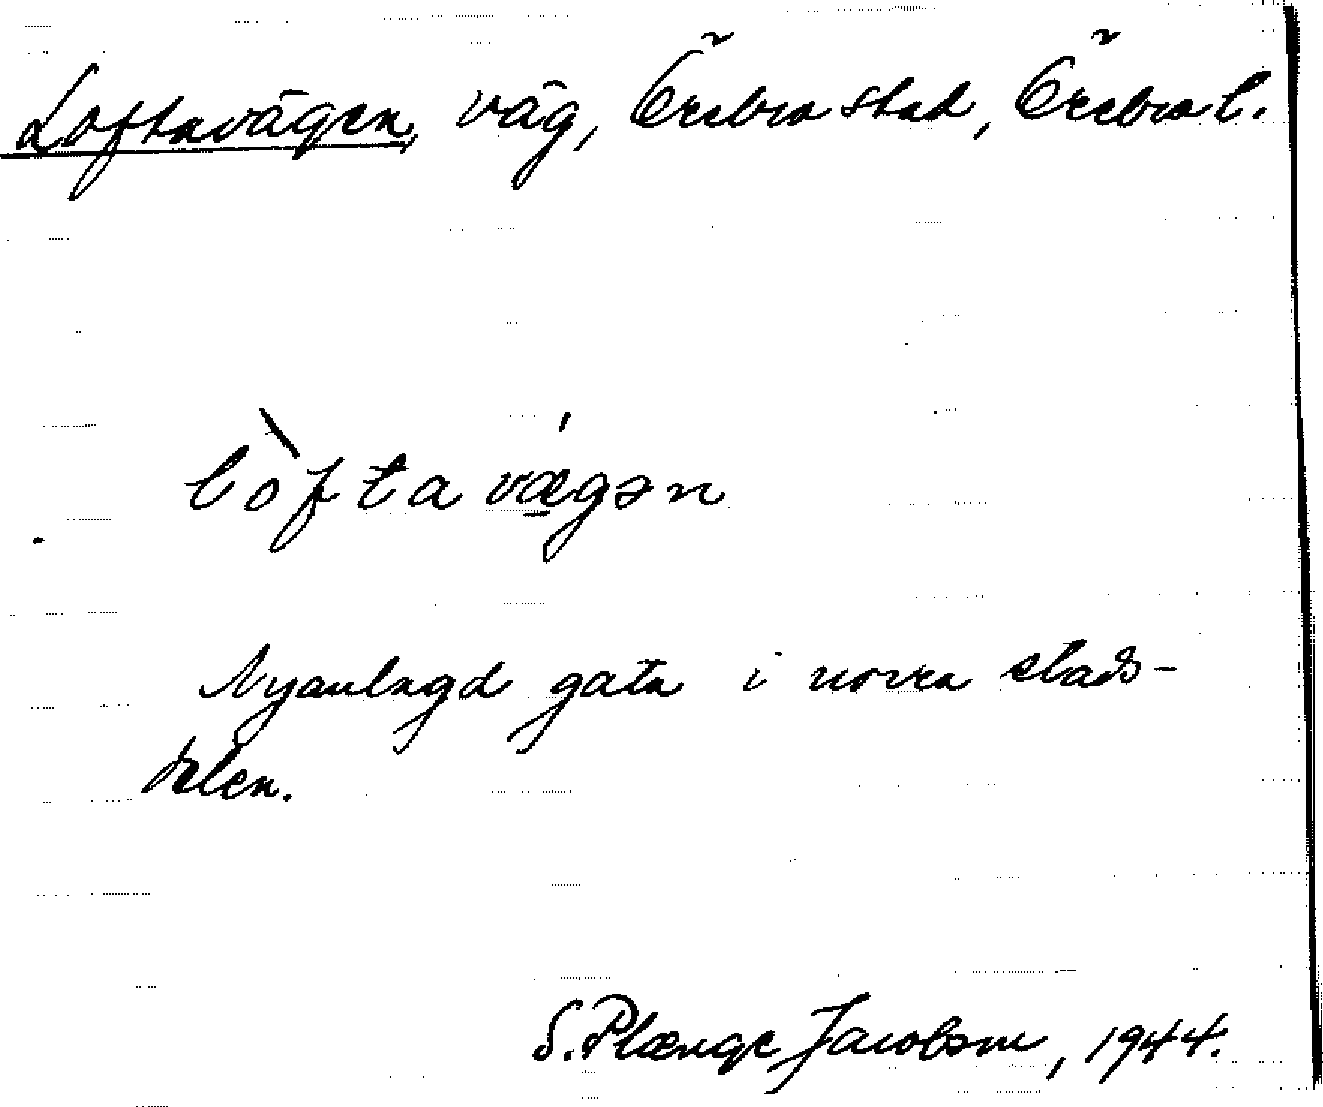 Loftavägen, väg, Örebro stad, Örebro l.
lòftavǽ̲gən
Nyanlagd gata i norra stads-
delen.
S. Plænge Jacobson, 1944.